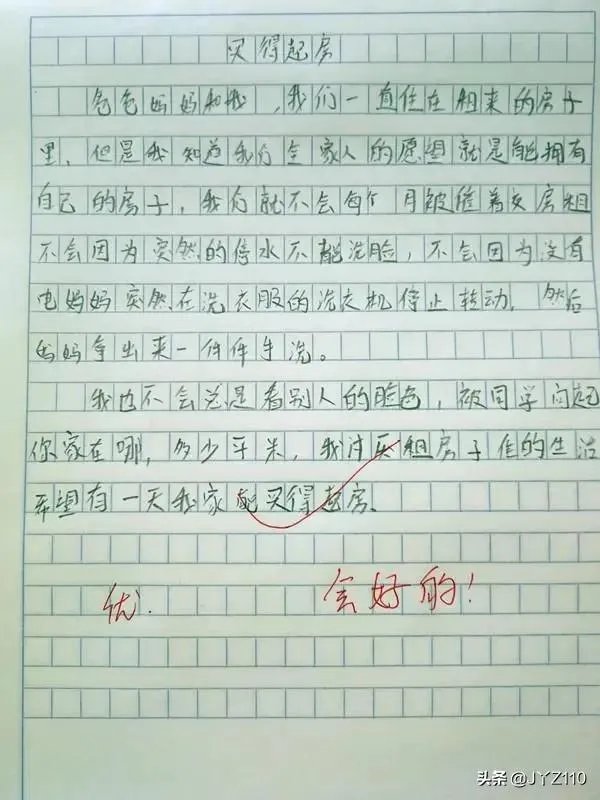 买得起房
爸爸妈妈和我，我们一直住在租来的房子
里，但是我知道我们全家人的愿望就是能拥有
自己的房子，我们就不会每个月被催着交房租
不会因为突然的停水不能洗脸，不会因为没有
电妈妈突然在洗衣服的洗衣机停止转动，然后
妈妈拿出来一件件手洗。
我也不会总是看别人的脸色，被同学问起
你家在哪，多少平米，我讨厌租房子住的生活
希望有一天我家能买得起房。
优.
会好的！
头条@JYZ110